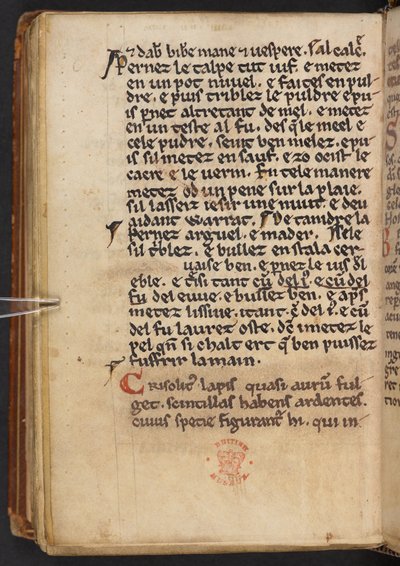 ⁊ dab̃ bibe mane ⁊ uespere. Sal calc̃.
Pernez le talpe tut uif. e metez
en un pot nuuel. e faites en pul
dre. e puis triblez le puldre e pu
is p̃net altretant de mel. e metez
en un teste al fu. des q̃ le meel e
cele pudre. seiit ben melez. e pu
is sil metez en sauf. e zo ocist le
cacre e le uerm. En tele manere
metez od un pene sur la plaie.
sil lasseiz iesir une nuit. e deu
aidant warrat. De tandre la
Pernez arguel. e mader.
sil t̾blez. e bullez en stala cer
uaise ben. e p̃nez le ius di
eble. e
fu del euue. e bullez ben. e ap̾s
metez lissiue. itant
del fu lauret oste. den͛ metez le
pel qñ si chalt ert q̃ ben puissez
suffrir la main.
Crisolit᷒ lapis quasi aurũ ful
get. scintillas habens ardentes.
cuius specie figurant᷑ hi. qui in
BRITISH
MUSEUM